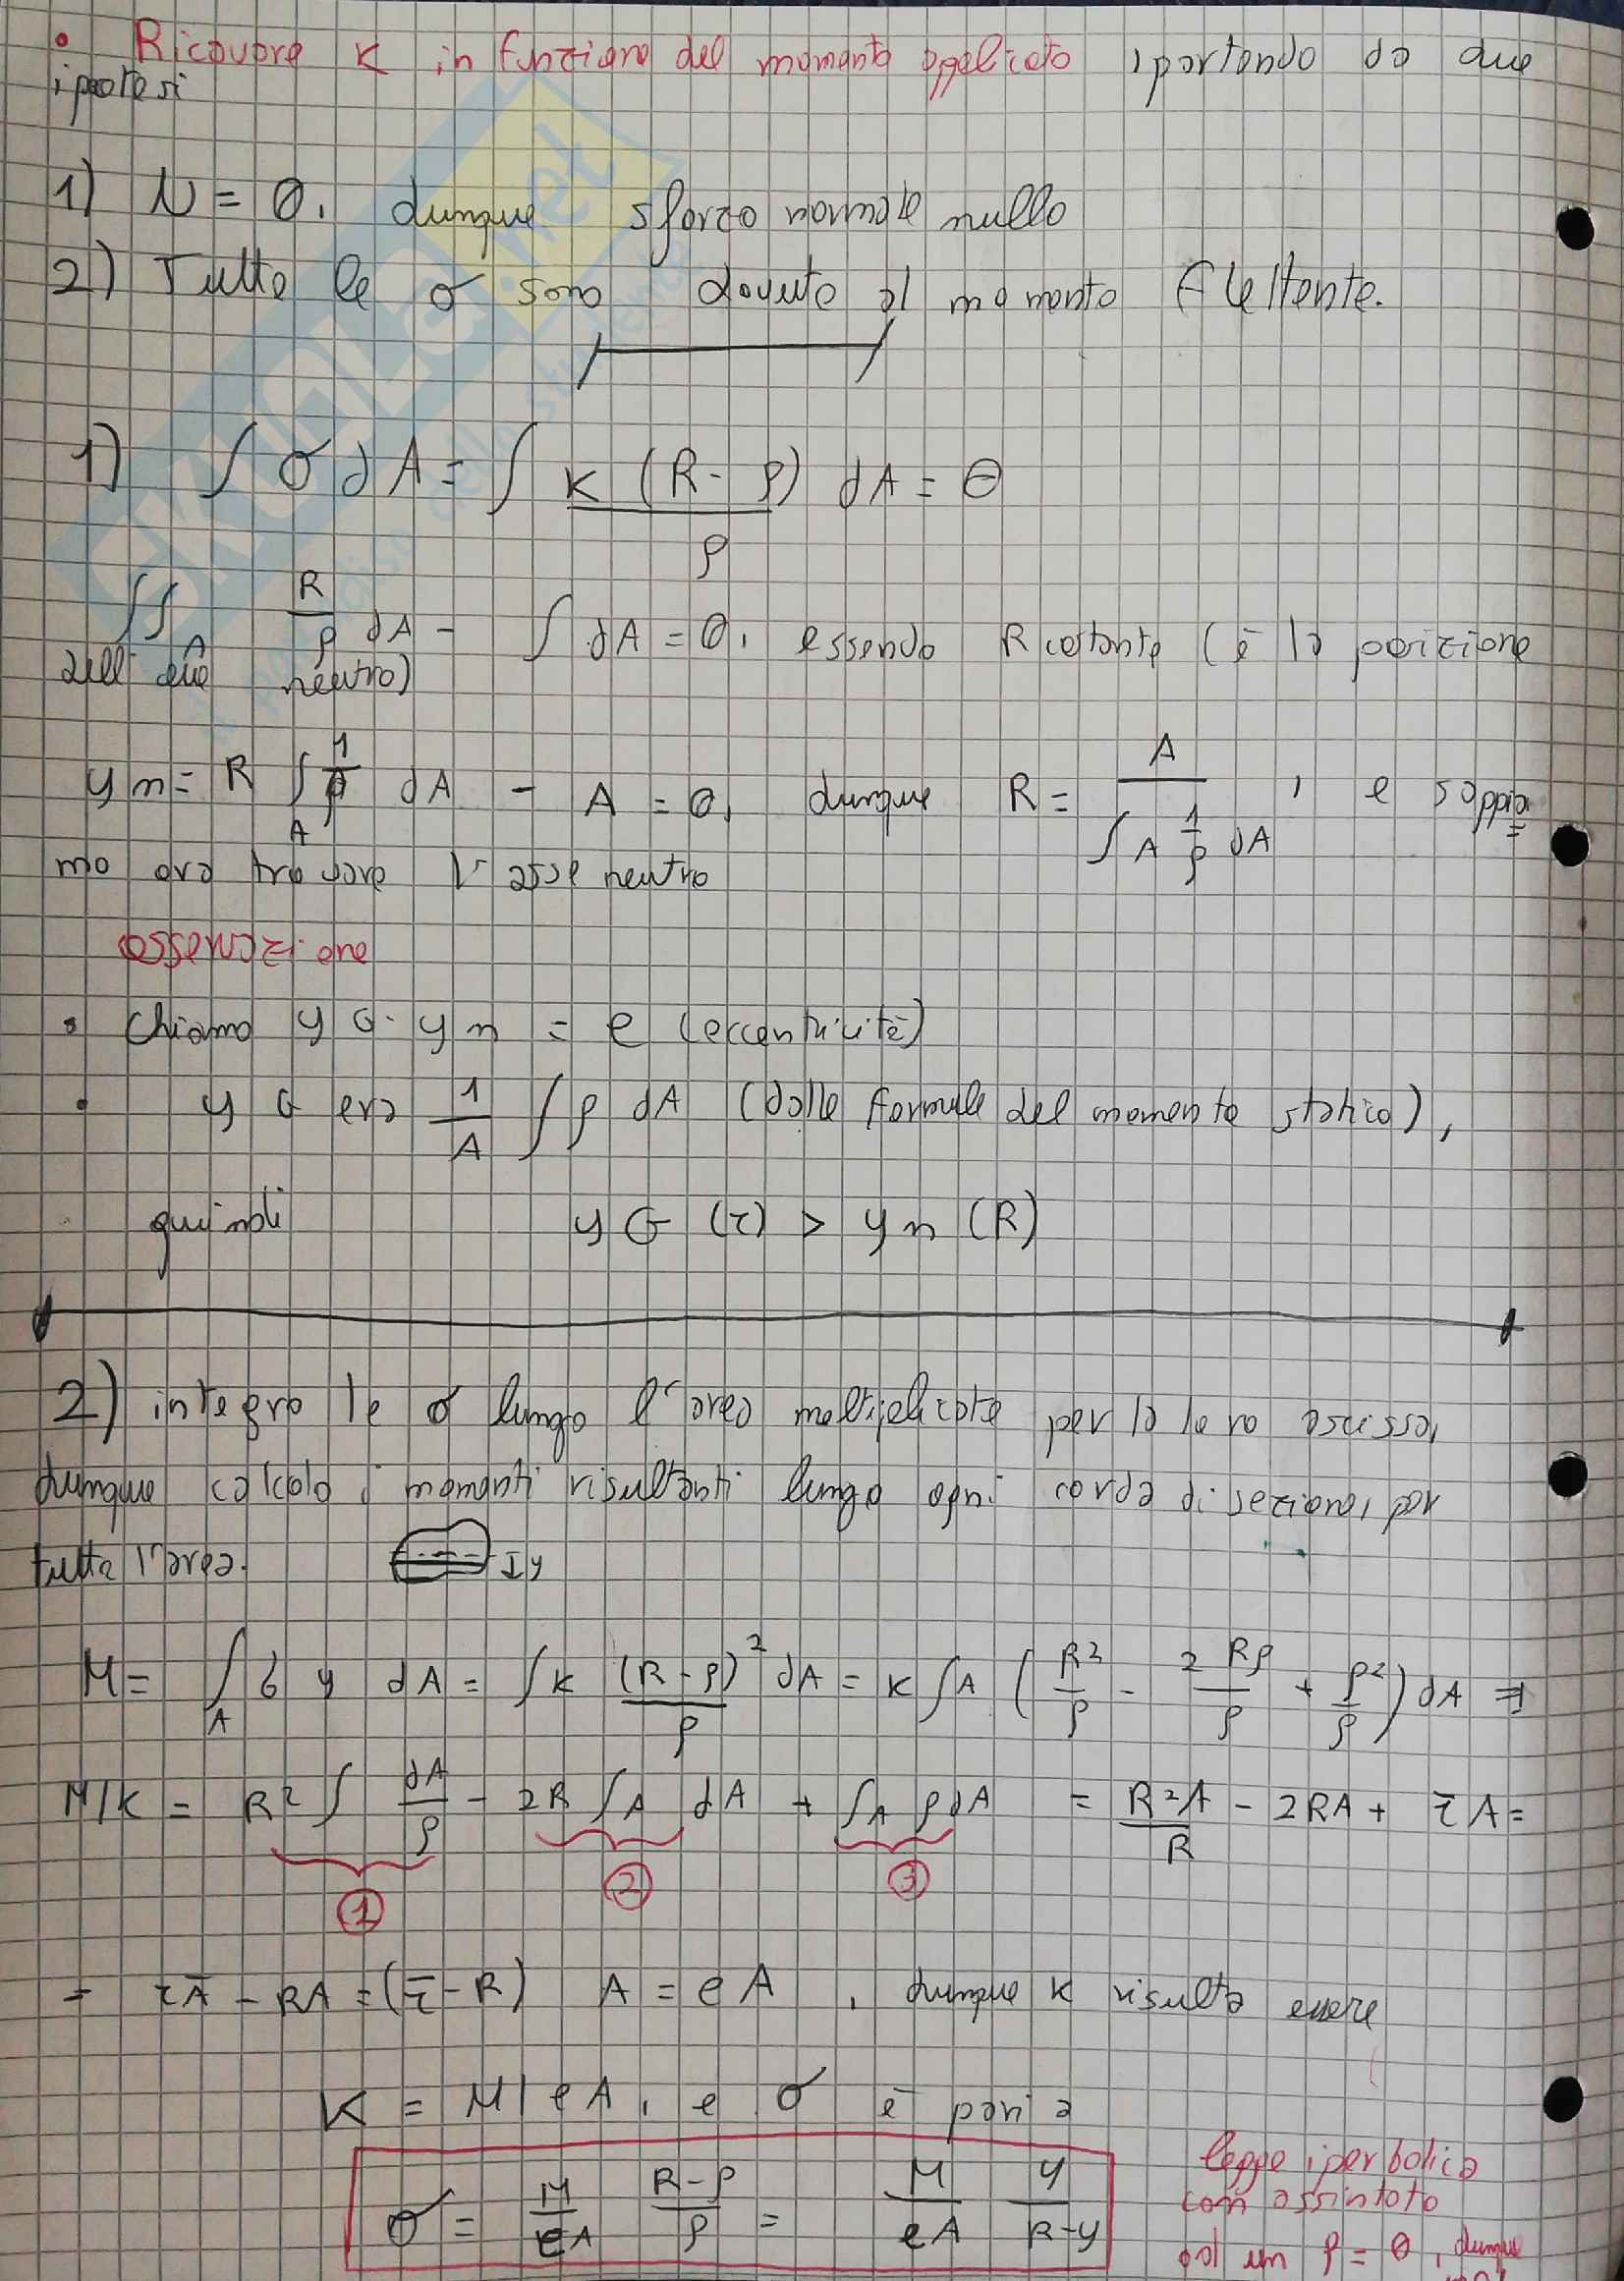 • Ricavare K in funzione del momento applicato, partendo da due
ipotesi
1) N = 0, dunque sforzo normale nullo
2) Tutte le σ sono dovute al momento flettente.
1) ∫ σ dA = ∫ K (R - ρ) / ρ dA = 0
∫∫ R/ρ dA - ∫ dA = 0, essendo R costante (è la posizione
dell'asse neutro)
yn = R ∫A 1/ρ dA - A = 0, dunque R = A / ∫A 1/ρ dA, e sappia=
mo ora trovare l'asse neutro
osservazione
• Chiamo yG - yn = e (eccentricità)
• yG era 1/A ∫ ρ dA (dalle formule del momento statico),
quindi yG (r̄) > yn (R)
2) integro le σ lungo l'area moltiplicate per la loro ascissa,
dunque calcolo i momenti risultanti lungo ogni corda di sezione, per
tutta l'area. Iy
M = ∫A σ y dA = ∫ K (R-ρ)²/ρ dA = K ∫A (R²/ρ - 2Rρ/ρ + ρ²/ρ) dA ⇒
M/K = R² ∫ dA/ρ - 2R ∫A dA + ∫A ρ dA = R²A/R - 2RA + r̄A =
① ② ③
= r̄A - RA = (r̄ - R) A = eA, dunque K risulta essere
K = M/eA, e σ è pari a
σ = M/eA R-ρ/ρ = M/eA y/R-y
legge iperbolica
con assintoto
ad un ρ = 0, dunque